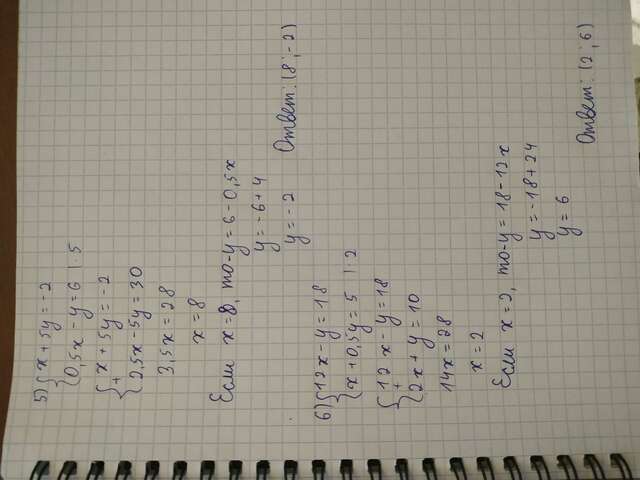 5) { x + 5y = -2
{ 0,5x - y = 6 | · 5
{ x + 5y = -2
+
{ 2,5x - 5y = 30
3,5x = 28
x = 8
Если x = 8, то -y = 6 - 0,5x
y = -6 + 4
y = -2
Ответ: (8 ; -2)
6) { 12x - y = 18
{ x + 0,5y = 5 | · 2
{ 12x - y = 18
+
{ 2x + y = 10
14x = 28
x = 2
Если x = 2, то -y = 18 - 12x
y = -18 + 24
y = 6
Ответ: (2 ; 6)